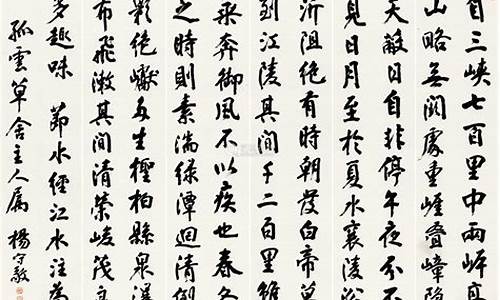 自三峽七百里中兩岸
山略無闕處重崖疊嶂隱
天蔽日自非停午夜分不
見日月至於夏水襄陵沿
泝阻絕有時朝發白帝暮
到江陵其間千二百里雖
乘奔御風不以疾也春冬
之時則素湍綠潭迴清倒
影絕巘多生檉柏懸泉瀑
布飛漱其間清榮峻茂良
多趣味 節水經江水注為
孤雲草舍主人屬 楊守敬